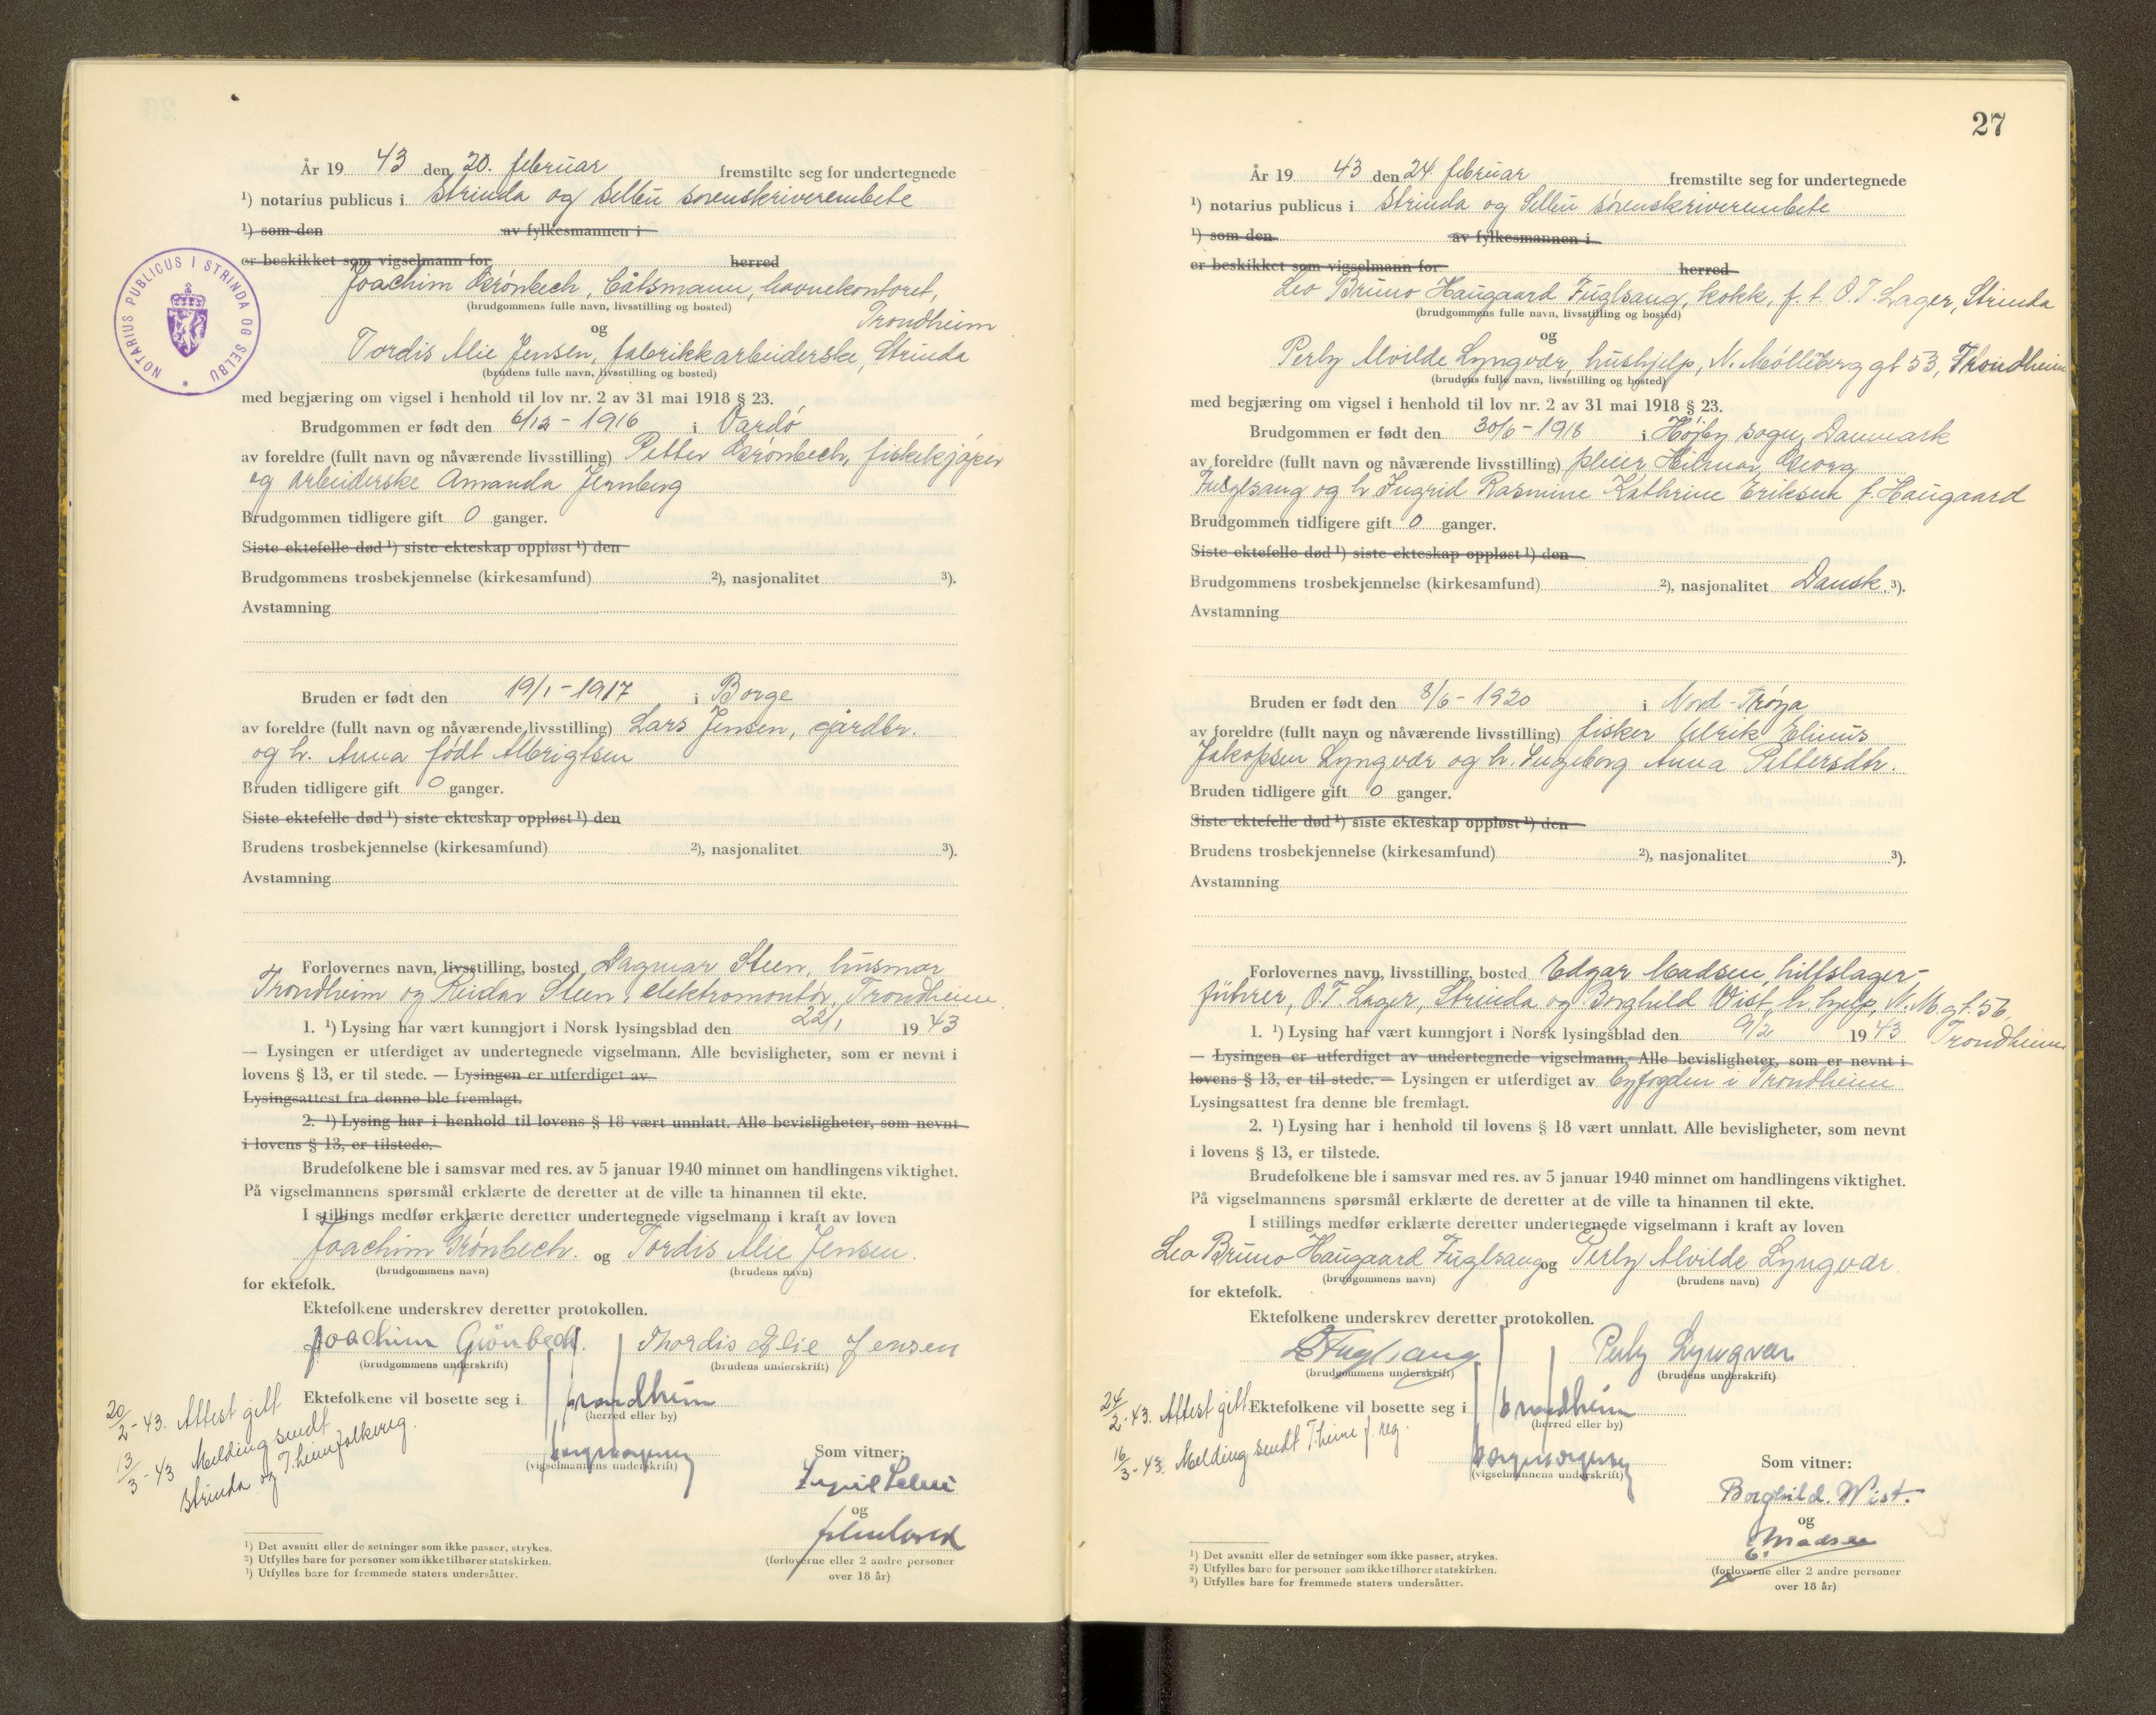 År 19 43 den 20. februar fremstilte seg for undertegnede
¹) notarius publicus i Strinda og Selbu sorenskriverembete
¹) som den av fylkesmannen i
er beskikket som vigselmann for herred
Joachim Grönbech, båtsmann, havnekontoret,
(brudgommens fulle navn, livsstilling og bosted)
Trondheim
og
Tordis Alie Jensen, fabrikkarbeiderske, Strinda
(brudens fulle navn, livsstilling og bosted)
NOTARIUS PUBLICUS I STRINDA OG SELBU *
med begjæring om vigsel i henhold til lov nr. 2 av 31 mai 1918 § 23.
Brudgommen er født den 6/12 - 1916 i Vardö
av foreldre (fullt navn og nåværende livsstilling) Petter Grönbech, fiskekjöper
og arbeiderske Amanda Jernberg
Brudgommen tidligere gift 0 ganger.
Siste ektefelle død ¹) siste ekteskap oppløst ¹) den
Brudgommens trosbekjennelse (kirkesamfund) ²), nasjonalitet ³).
Avstamning
Bruden er født den 19/1 - 1917 i Borge
av foreldre (fullt navn og nåværende livsstilling) Lars Jensen, gårdbr.
og h. Anna født Albrigtsen
Bruden tidligere gift 0 ganger.
Siste ektefelle død ¹) siste ekteskap oppløst ¹) den
Brudens trosbekjennelse (kirkesamfund) ²), nasjonalitet ³).
Avstamning
Forlovernes navn, livsstilling, bosted Dagmar Steen, husmor
Trondheim og Reidar Steen, elektromontör, Trondheim.
1. ¹) Lysing har vært kunngjort i Norsk lysingsblad den 22/1 19 43
— Lysingen er utferdiget av undertegnede vigselmann. Alle bevisligheter, som er nevnt i
lovens § 13, er til stede. — Lysingen er utferdiget av
Lysingsattest fra denne ble fremlagt.
2. ¹) Lysing har i henhold til lovens § 18 vært unnlatt. Alle bevisligheter, som nevnt
i lovens § 13, er tilstede.
Brudefolkene ble i samsvar med res. av 5 januar 1940 minnet om handlingens viktighet.
På vigselmannens spørsmål erklærte de deretter at de ville ta hinannen til ekte.
I stillings medfør erklærte deretter undertegnede vigselmann i kraft av loven
Joachim Grönbech. og Tordis Alie Jensen.
(brudgommens navn) (brudens navn)
for ektefolk.
Ektefolkene underskrev deretter protokollen.
Joachim Grönbech. Thordis Elie Jensen
(brudgommens underskrift) (brudens underskrift)
Ektefolkene vil bosette seg i Trondheim
(herred eller by)
20/2 - 43. Attest gitt
13/3 - 43 Melding sendt
Strinda og T.heim folkereg.
(vigselmannens underskrift)
Som vitner:
og
(forloverne eller 2 andre personer
over 18 år)
¹) Det avsnitt eller de setninger som ikke passer, strykes.
²) Utfylles bare for personer som ikke tilhører statskirken.
³) Utfylles bare for fremmede staters undersåtter.
27
År 19 43 den 24. februar fremstilte seg for undertegnede
¹) notarius publicus i Strinda og Selbu sorenskriverembete
¹) som den av fylkesmannen i
er beskikket som vigselmann for herred
Leo Bruno Haugaard Fuglsang, kokk, f. t. O.T. Lager, Strinda
(brudgommens fulle navn, livsstilling og bosted)
og
Perly Alvilde Lyngvær, hushjelp, N. Möllebergt gt 53, Trondheim
(brudens fulle navn, livsstilling og bosted)
med begjæring om vigsel i henhold til lov nr. 2 av 31 mai 1918 § 23.
Brudgommen er født den 30/6 - 1918 i Højby sogn, Danmark
av foreldre (fullt navn og nåværende livsstilling) pleier Hilmar Georg
Fuglsang og h. Ingrid Rasmine Kathrine Eriksen f. Haugaard
Brudgommen tidligere gift 0 ganger.
Siste ektefelle død ¹) siste ekteskap oppløst ¹) den
Brudgommens trosbekjennelse (kirkesamfund) ²), nasjonalitet Dansk. ³).
Avstamning
Bruden er født den 8/6 - 1920 i Nord-Fröya
av foreldre (fullt navn og nåværende livsstilling) fisker Ulrik Elinus
Jakopsen Lyngvær og h. Ingeborg Anna Pettersdtr.
Bruden tidligere gift 0 ganger.
Siste ektefelle død ¹) siste ekteskap oppløst ¹) den
Brudens trosbekjennelse (kirkesamfund) ²), nasjonalitet ³).
Avstamning
Forlovernes navn, livsstilling, bosted Edgar Madsen, hilfslager-
führer, O.T. Lager, Strinda og Borghild Wist, h. hjelp, N. M. gt. 56,
Trondheim
1. ¹) Lysing har vært kunngjort i Norsk lysingsblad den 9/2 19 43
— Lysingen er utferdiget av undertegnede vigselmann. Alle bevisligheter, som er nevnt i
lovens § 13, er til stede. — Lysingen er utferdiget av byfogden i Trondheim
Lysingsattest fra denne ble fremlagt.
2. ¹) Lysing har i henhold til lovens § 18 vært unnlatt. Alle bevisligheter, som nevnt
i lovens § 13, er tilstede.
Brudefolkene ble i samsvar med res. av 5 januar 1940 minnet om handlingens viktighet.
På vigselmannens spørsmål erklærte de deretter at de ville ta hinannen til ekte.
I stillings medfør erklærte deretter undertegnede vigselmann i kraft av loven
Leo Bruno Haugaard Fuglsang og Perly Alvilde Lyngvær
(brudgommens navn) (brudens navn)
for ektefolk.
Ektefolkene underskrev deretter protokollen.
L Fuglsang Perly Lyngvær
(brudgommens underskrift) (brudens underskrift)
24/2 - 43. Attest gitt
Ektefolkene vil bosette seg i Trondheim
(herred eller by)
16/3 - 43. Melding sendt T.heim f. reg.
(vigselmannens underskrift)
Som vitner:
Borghild. Wist.
og
E. Madsen
(forloverne eller 2 andre personer
over 18 år)
¹) Det avsnitt eller de setninger som ikke passer, strykes.
²) Utfylles bare for personer som ikke tilhører statskirken.
³) Utfylles bare for fremmede staters undersåtter.